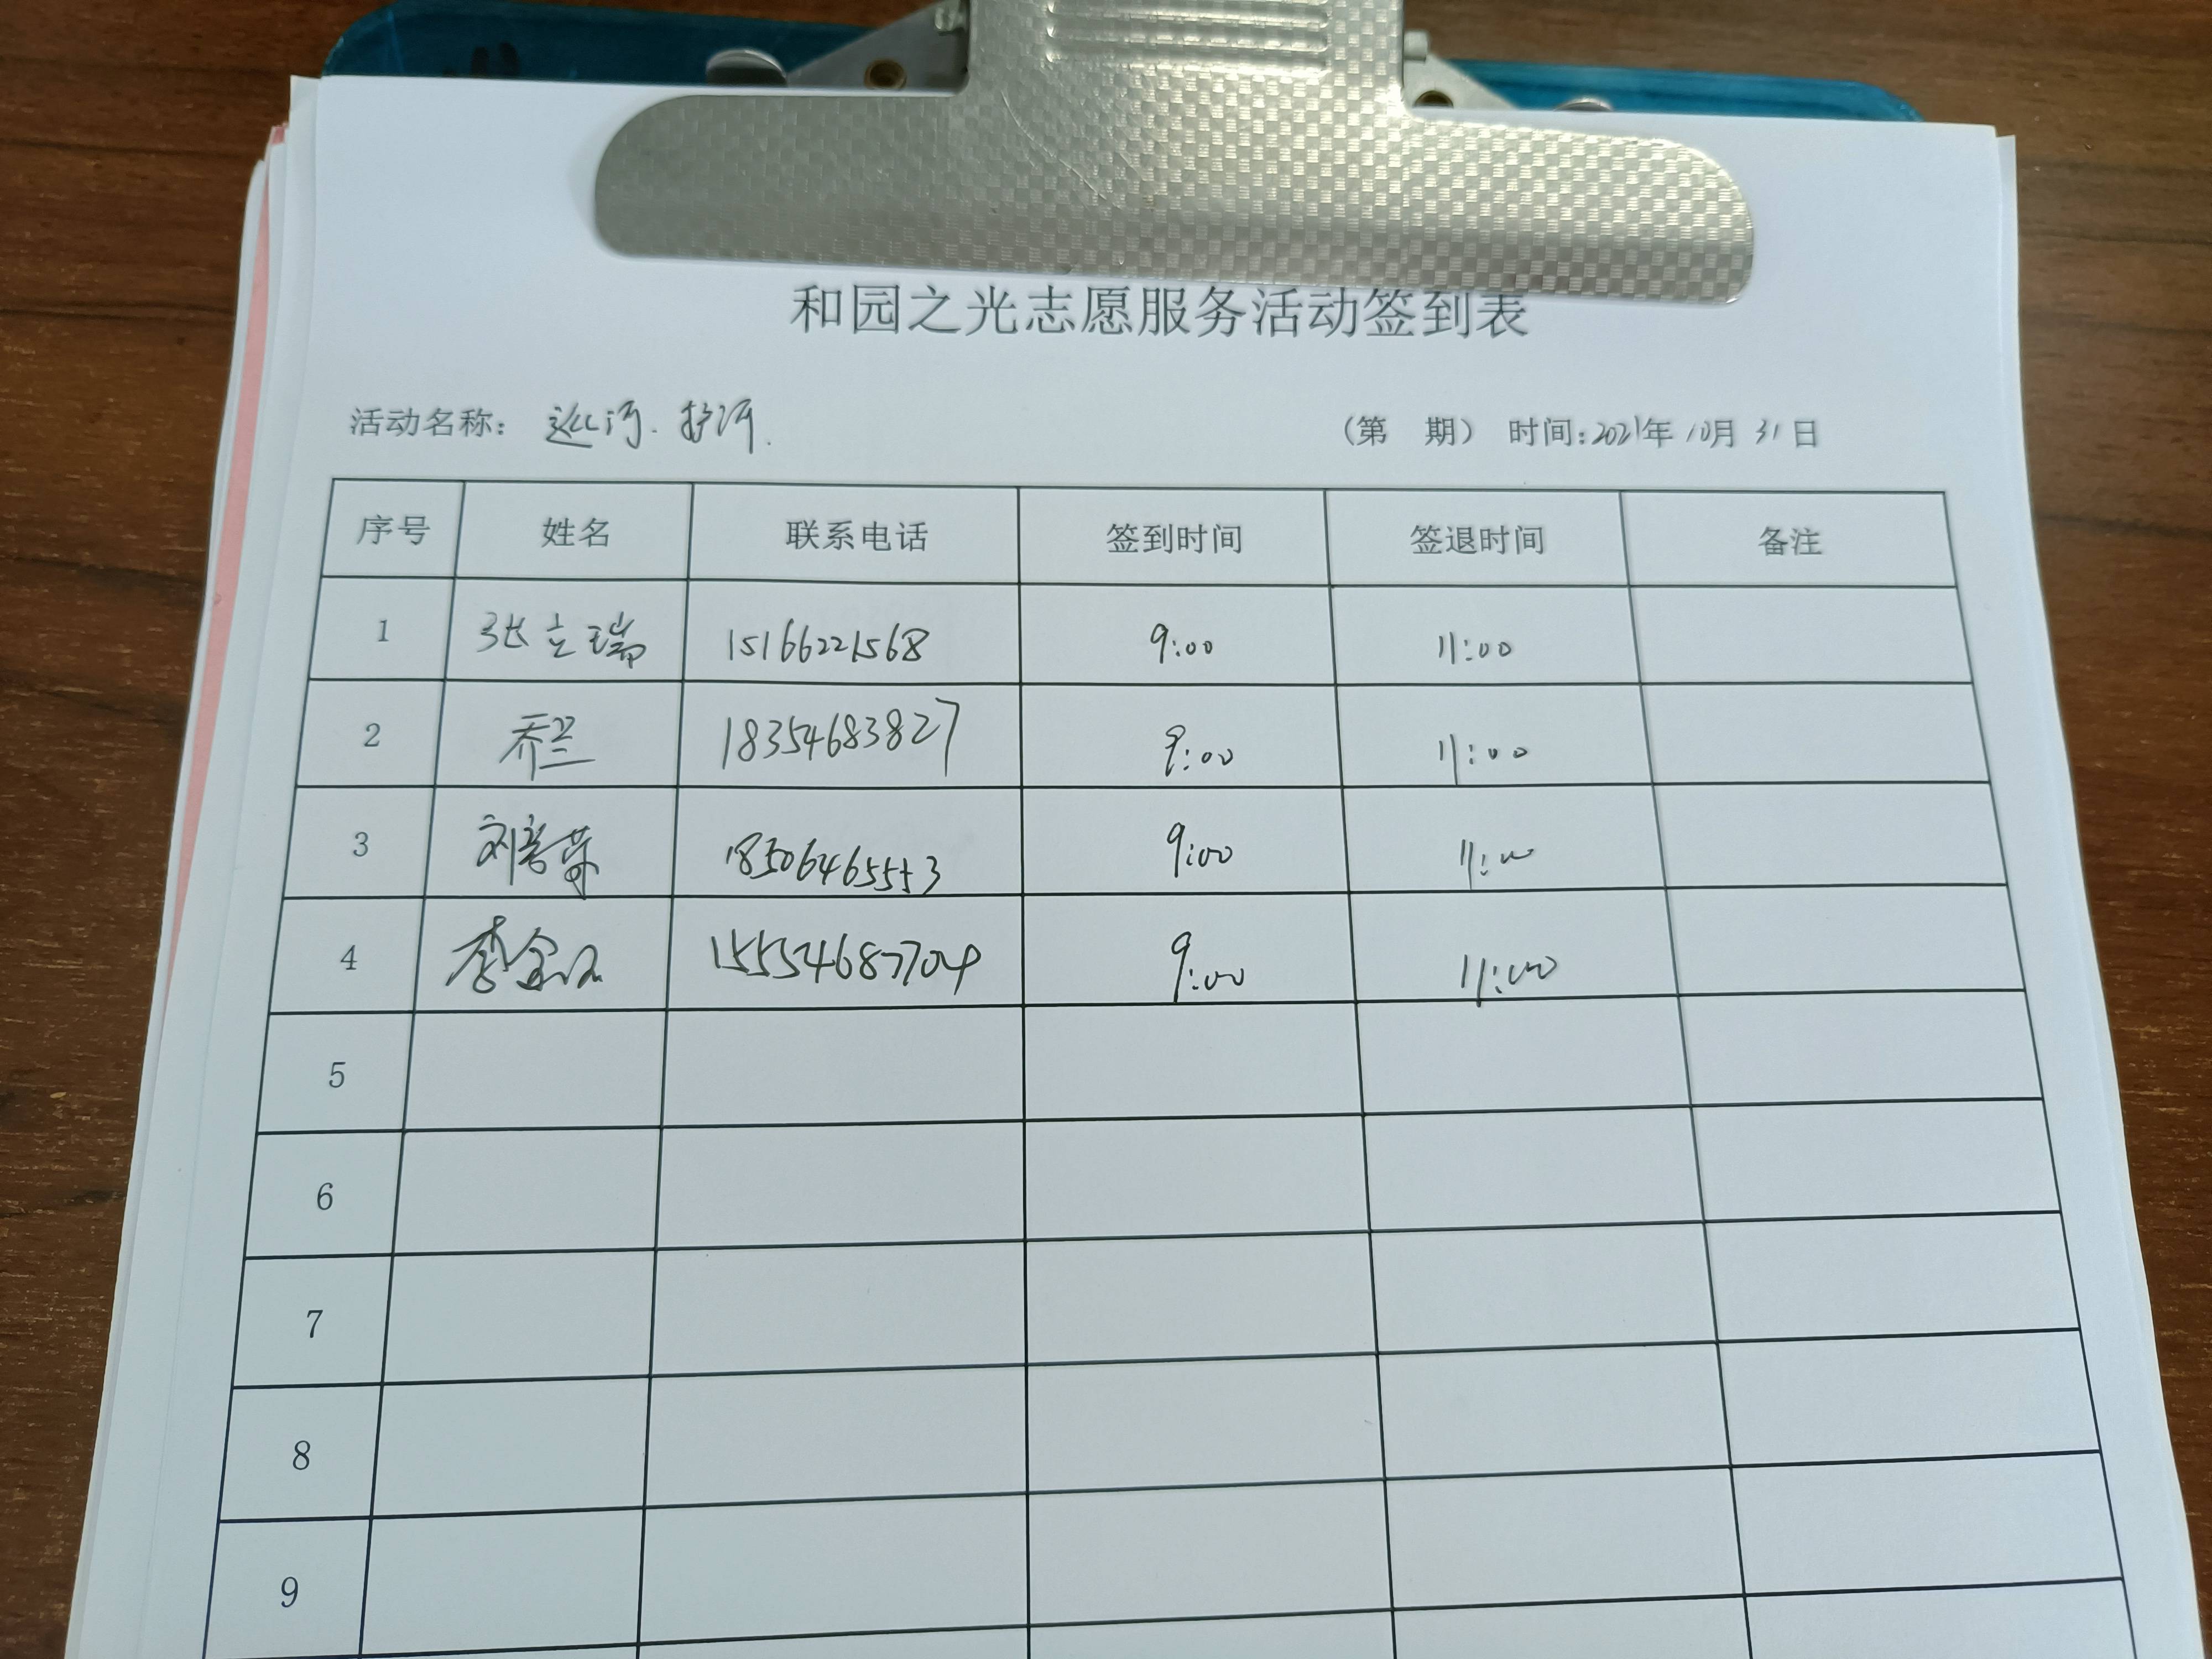 和园之光志愿服务活动签到表
活动名称： 巡河. 护河.
（第 期） 时间:2021年10月31日
序号 姓名 联系电话 签到时间 签退时间 备注
1 张立瑞 15166221568 9:00 11:00
2 乔兰 18354683827 9:00 11:00
3 刘 荣 18506465553 9:00 11:00
4 李金 15554687704 9:00 11:00
5
6
7
8
9